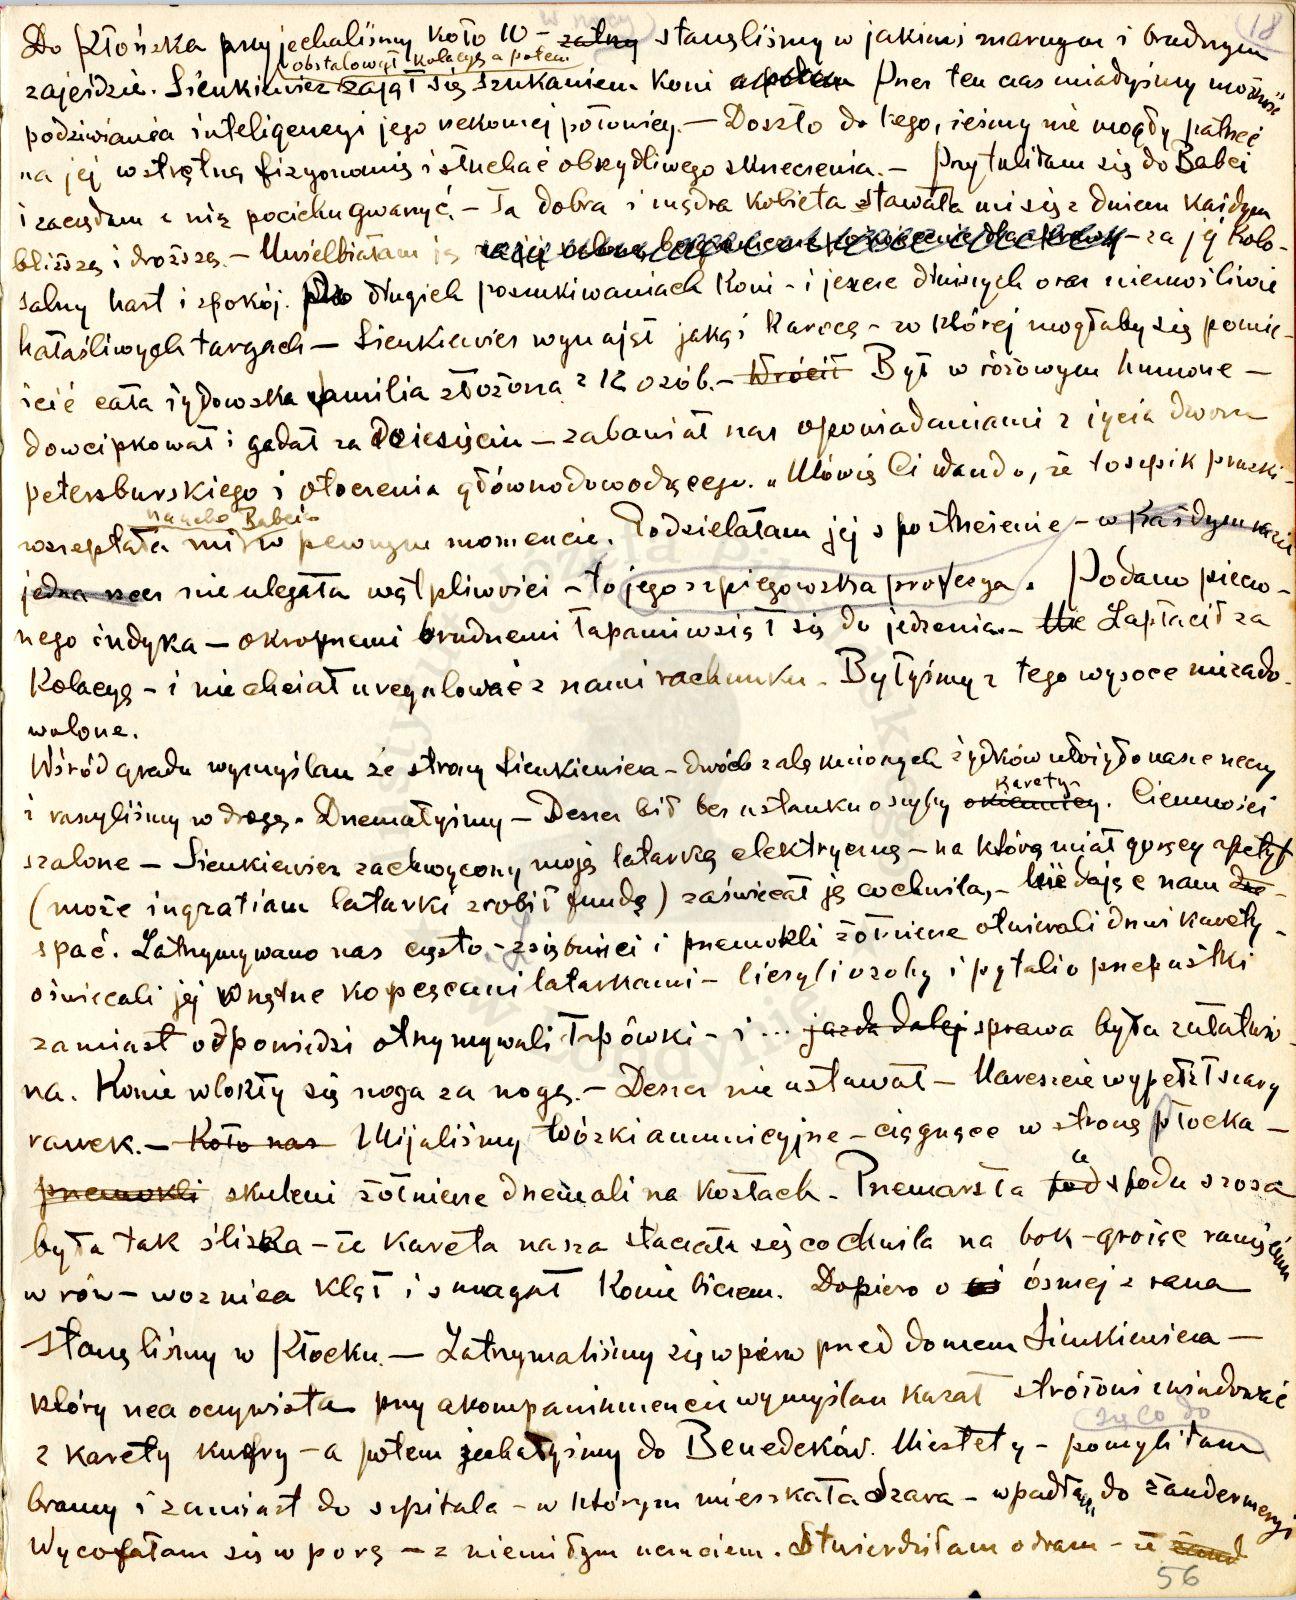 w nocy 18
Do Płońska przyjechaliśmy koło 10 – stanęliśmy w jakimś marnym i brudnym
obstalował kolację a potem
zajeździe. Sienkiewicz zajął się szukaniem koni a potem Przez ten czas miałyśmy możność
podziwiania inteligencyi jego rekomej połowicy. – Doszło do tego, żeśmy nie mogły patrzeć
na jej wstrętną fizyonomię i słuchać obrzydliwego skrzeczenia. – Przytuliłam się do Babci
i zaczęłam z nią pocichu gwarzyć. – Ta dobra i mądra kobieta stawała mi się z dniem każdym
bliższą i droższą. – Uwielbiałam ją – za jej kolo-
salny hart i spokój. Po długich poszukiwaniach koni – i jeszcze dłuższych oraz niemożliwie
hałaśliwych targach – Sienkiewicz wynajął jakąś karocę – w której mogłaby się pomie-
ścić cała żydowska familia złożona z 12 osób. – Wrócił Był w różowym humorze –
dowcipkował i gadał za dziesięciu – zabawiał nas opowiadaniami z życia dworu
petersburskiego i otoczenia głównodowodzącego. „Mówię Ci Wando, że to szpik pruski –
na ucho Babcia
wszeptała mi w pewnym momencie. Podzielałam jej spostrzeżenie – w każdym razie
jedna rzecz nie ulegała wątpliwości – to jego szpiegowska profesya. Podano pieczo-
nego indyka – okropnemi brudnemi łapami wziął się do jedzenia. – Zapłacił za
kolacyę – i nie chciał uregulować z nami rachunku. Byłyśmy z tego wysoce niezado-
wolone.
Wśród gradu wymyślań ze strony Sienkiewicza – dwóch zalęknionych żydków ułożyło nasze rzeczy
karety
i ruszyliśmy w drogę. Drzemałyśmy – Deszcz bił bez ustanku o szyby okiennicy. Ciemności
szalone – Sienkiewicz zachwycony moją latarką elektryczną – na którą miał gorący apetyt
(może in gratiam latarki zrobił fundę) zaświecał ją co chwila, – nie dając nam
spać. Zatrzymywano nas często – zziębnięci i przemokli żołnierze otwierali drzwi karety –
oświecali jej wnętrze kopcącemi latarkami – liczyli osoby i pytali o przepustki
zamiast odpowiedzi otrzymywali łapówki – i ... jazda dalej sprawa była załatwio-
na. Konie wlokły się noga za nogą. – Deszcz nie ustawał – Nareszcie wypełzł szary
ranek. – Koło nas Mijaliśmy wózki amunicyjne – ciągnące w stronę Płocka –
przemokli skuleni żołnierze drzemali na kozłach. Przemarzła od spodu szosa
była tak śliska – że kareta nasza staczała się co chwila na bok – grożąc runięciem
w rów – woźnica klął i smagał konie biczem. Dopiero o ósmej z rana
stanęliśmy w Płocku. – Zatrzymaliśmy się wpierw przed domem Sienkiewicza –
który rzecz oczywista przy akompaniamencie wymyślań kazał stróżowi
z karety kufry – a potem jechałyśmy do Benedeków. Niestety – pomyliłam
się co do
bramy i zamiast do szpitala – w którym mieszkała Szara – wpadłam do żandarmeryi
Wycofałam się w porę – z niemiłym uczuciem. Stwierdziłam odrazu – że
56